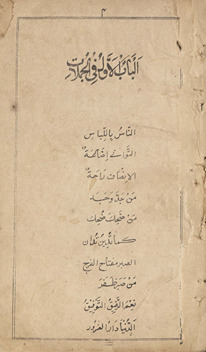 ٢
الباب الاول في الجملات
الناس باللباس
الانصاف راحة
من جد وجد
من ضحك ضحك
كما تدين تدان
الصبر مفتاح الفرج
من صبر ظفر
نعم الرفيق التوفيق
الدنيا دار الغرور